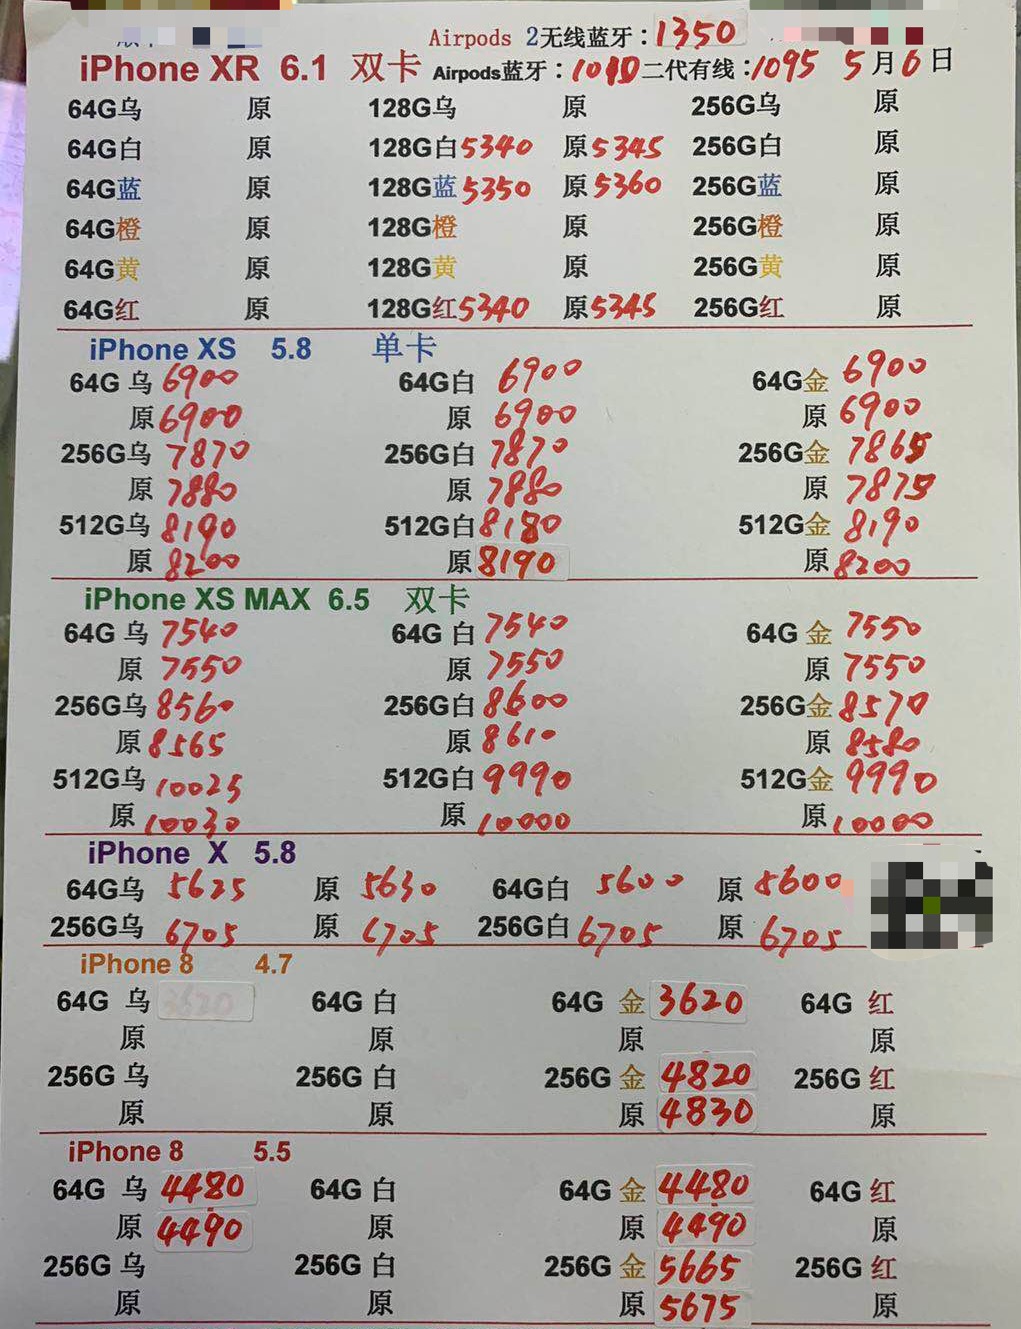 Airpods 2无线蓝牙：1350
iPhone XR 6.1 双卡 Airpods蓝牙：1010 二代有线：1095 5月6日
64G乌 原 128G乌 原 256G乌 原
64G白 原 128G白5340 原5345 256G白 原
64G蓝 原 128G蓝5350 原5360 256G蓝 原
64G橙 原 128G橙 原 256G橙 原
64G黄 原 128G黄 原 256G黄 原
64G红 原 128G红5340 原5345 256G红 原
iPhone XS 5.8 单卡
64G 乌6900 64G白 6900 64G金 6900
原6900 原 6900 原6900
256G乌 7870 256G白 7870 256G金 7865
原 7880 原 7880 原 7875
512G乌 8190 512G白8180 512G金 8190
原 8200 原8190 原8200
iPhone XS MAX 6.5 双卡
64G 乌 7540 64G 白 7540 64G 金 7550
原 7550 原 7550 原 7550
256G乌 8560 256G白 8600 256G金 8570
原8565 原 8610 原 8580
512G乌 10025 512G白 9990 512G金 9990
原 10030 原 10000 原10000
iPhone X 5.8
64G乌 5625 原 5630 64G白 5600 原 5600
256G乌 6705 原 6705 256G白 6705 原 6705
iPhone 8 4.7
64G 乌 3620 64G 白 64G 金 3620 64G 红
原 原 原 原
256G 乌 256G 白 256G 金 4820 256G 红
原 原 原 4830 原
iPhone 8 5.5
64G 乌 4480 64G 白 64G 金 4480 64G 红
原 4490 原 原 4490 原
256G 乌 256G 白 256G 金 5665 256G 红
原 原 原 5675 原